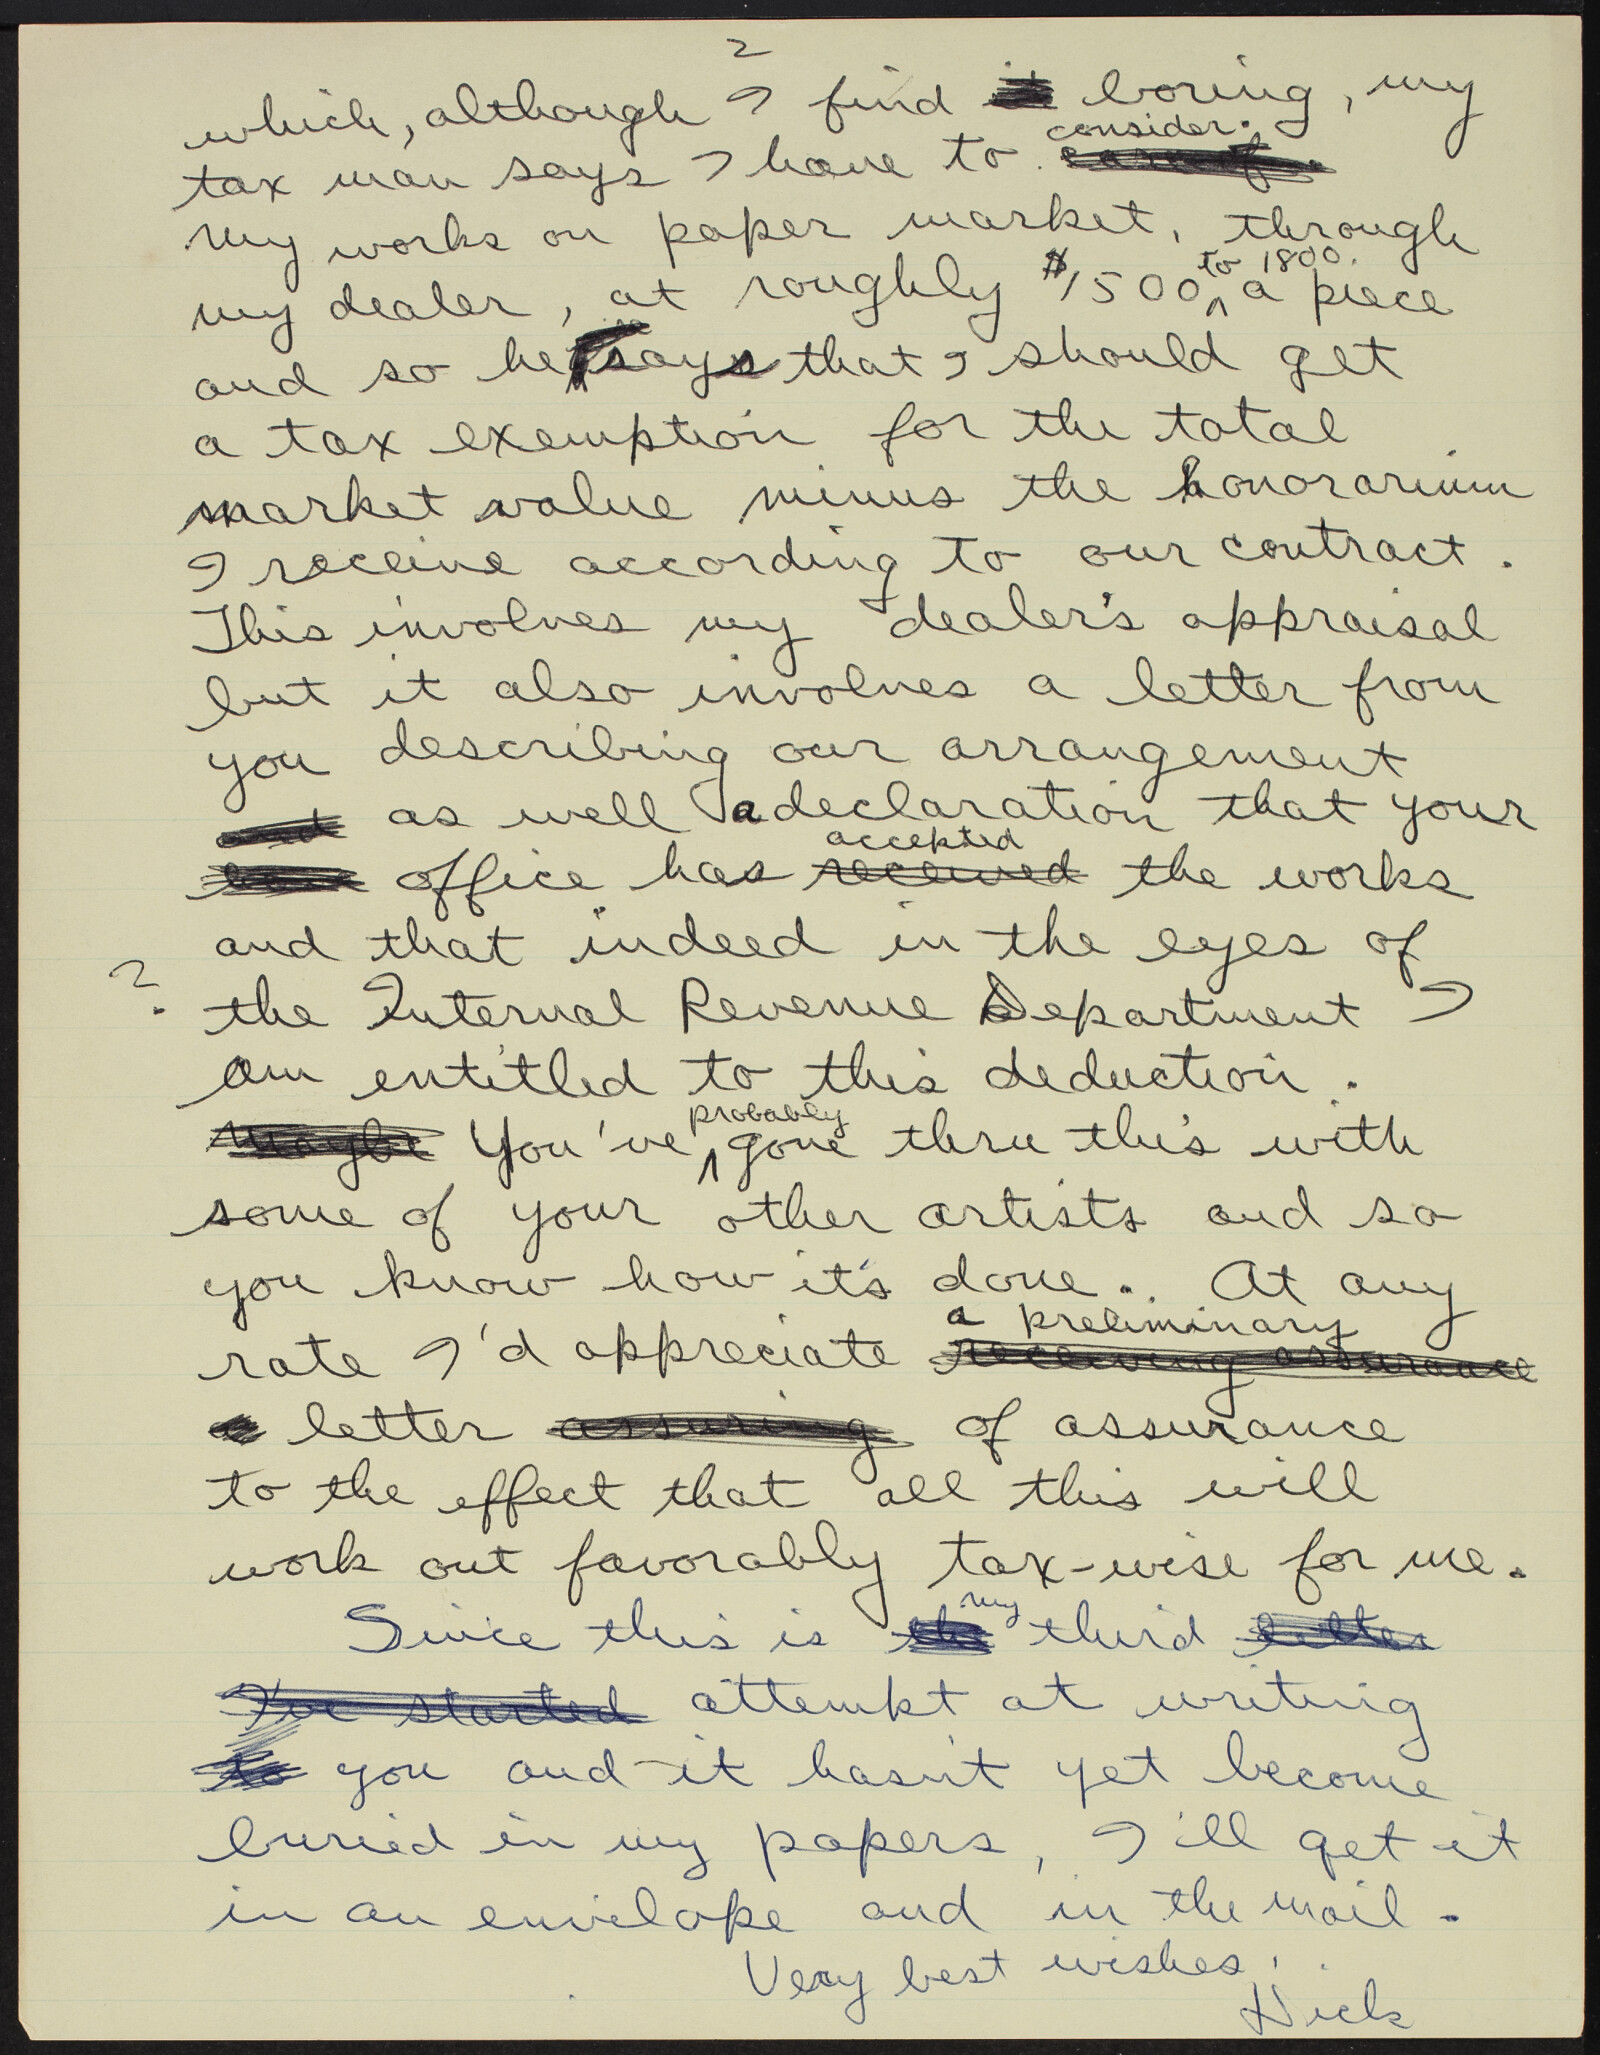 2
which, although I find boring, my
consider.
tax man says I have to.
My works on paper market, through
to 1800.
my dealer, at roughly $1500 ^ a piece
and so he says that I should get
a tax exemption for the total
market value minus the honorarium
I receive according to our contract.
This involves my dealer's appraisal
but it also involves a letter from
you describing our arrangement
as well a declaration that your
accepted
office has received the works
and that indeed in the eyes of
?
the Internal Revenue Department I
am entitled to this deduction.
probably
Maybe You've ^ gone thru this with
some of your other artists and so
you know how it's done. At any
a preliminary
rate I'd appreciate receiving assurance
a letter assuring of assurance
to the effect that all this will
work out favorably tax-wise for me.
my
Since this is the third letter
I've started attempt at writing
to you and it hasn't yet become
buried in my papers, I'll get it
in an envelope and in the mail.
Very best wishes,
Nick